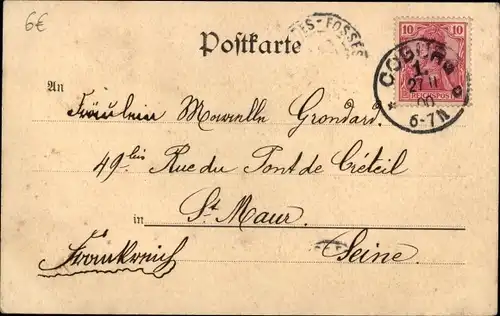 6€
DES-FOSSES
Postkarte
10 10
REICHSPOST
COBURG
1.
27 11
00
6-7N
An
Fräulein Marcelle Grondard.
49bis Rue du Pont de Créteil
in St Maur.
Frankreich Seine.